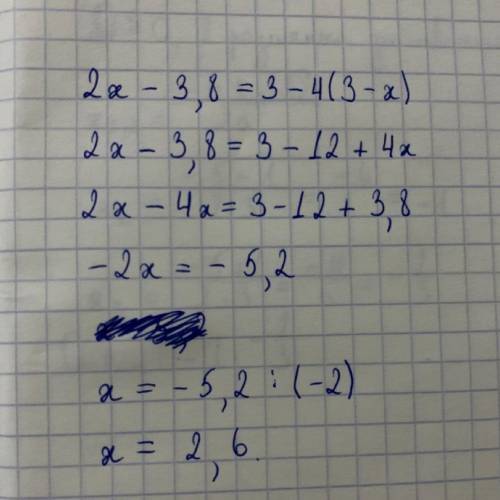 2x - 3,8 = 3 - 4(3 - x)
2x - 3,8 = 3 - 12 + 4x
2x - 4x = 3 - 12 + 3,8
-2x = - 5,2
x = - 5,2 : (-2)
x = 2,6.